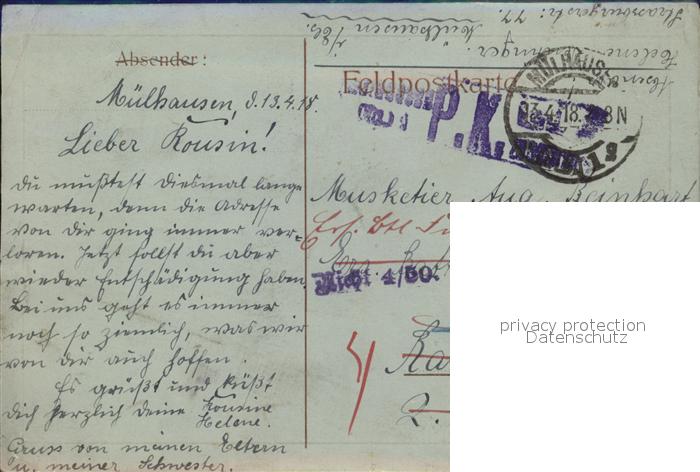 Absender:
Mülhausen, d. 13.4.18.
Lieber Kousin!
Du mußtest diesmal lange
warten, denn die Adresse
von dir ging immer ver-
loren. Jetzt sollst du aber
wieder Entschädigung haben
Bei uns geht es immer
noch so ziemlich, was wir
von dir auch hoffen.
Es grüßt und küßt
dich herzlich deine Kousine
Helene.
Gruss von meinen Eltern
u. meiner Schwester.
Helene
Mülhausen i/Els.
Strassburgerstr. 77.
Feldpostkarte
MÜLHAUSEN
13.4.18. 8 N
P.K.
Musketier Aug. Reinhart
Ers. Btl
4/50.
2.
privacy protection
Datenschutz